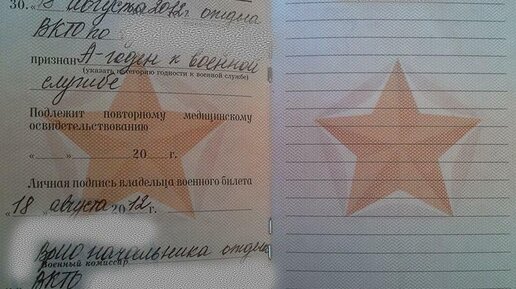 30. „18 августа 2012г. отдел
ВКТО по
признан А-годен к военной
(указать категорию годности к военной службе)
службе
Подлежит повторному медицинскому
освидетельствованию
„ “ 20 г.
Личная подпись владельца военного билета
„18 “ августа 2012г.
ВрИО начальника отдела
Военный комиссар
ВКТО